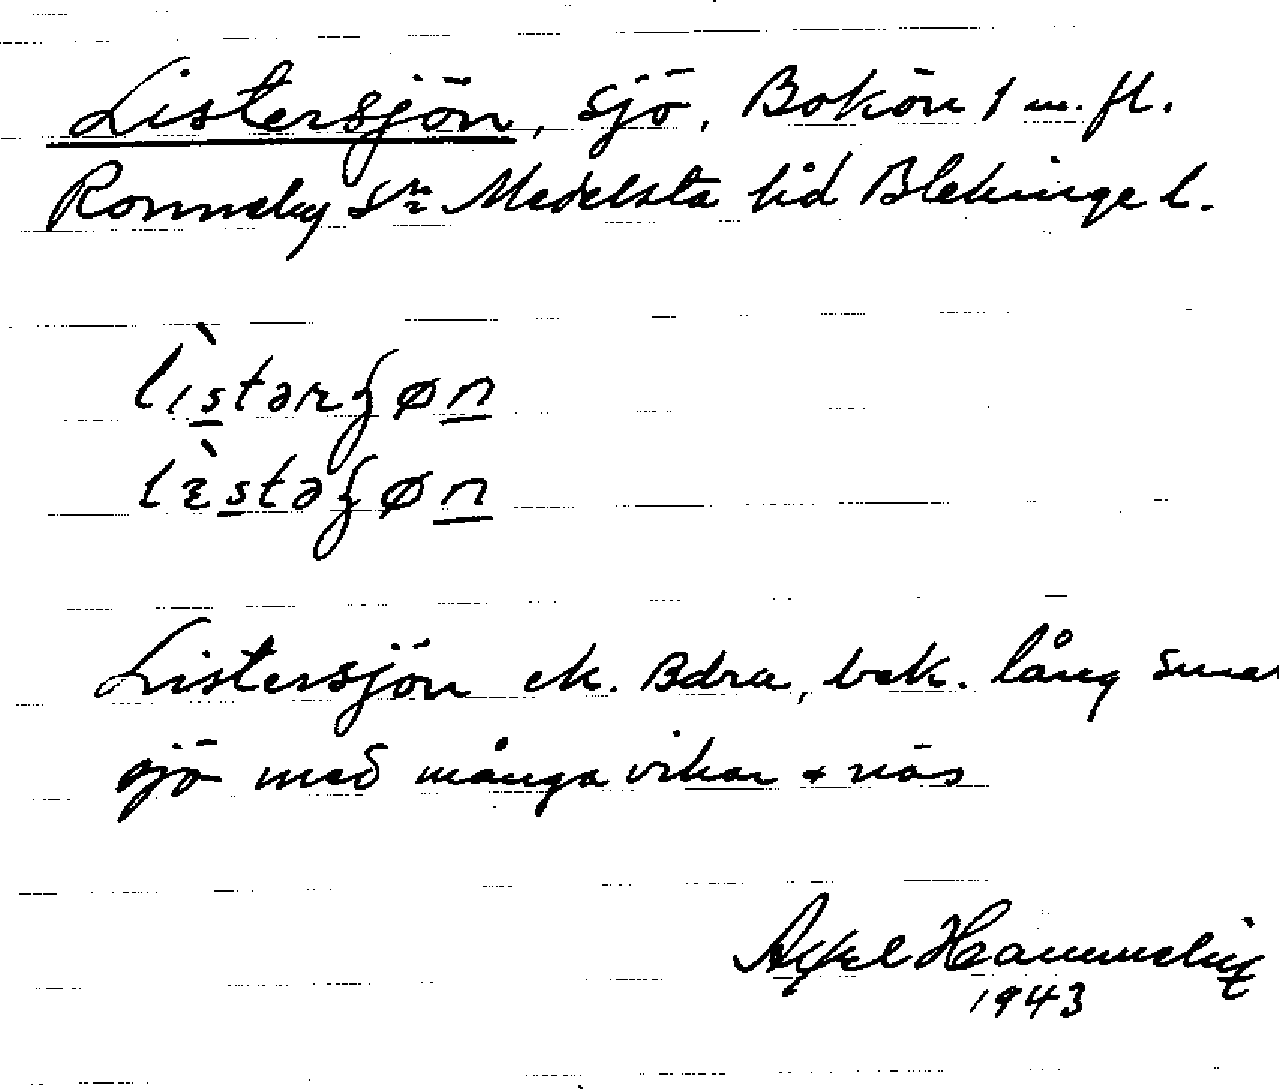 Listersjön, sjö, Bokön 1 m. fl.
Ronneby sn Medelsta hd Blekinge l.
lìstərʃøn
lìstəʃøn
Listersjön ek. Bdra, bek. lång smal
sjö med många vikar + näs
Axel
1943